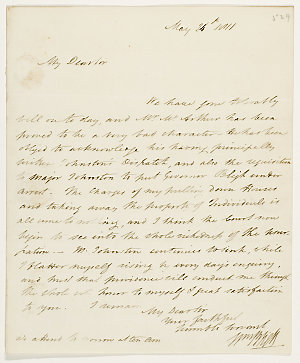 524
May 26th 1811
My Dear Sir
We have gone tolerably
well on to day, and Mr McArthur has been
proved to be a very bad character he has been
obliged to acknowledge his having principally
written Johnston's Dispatch, and also the requisition
to Major Johnston to put Governor Bligh under
arrest. The Charges of my pulling down Houses
and taking away the property of Individuals is
all come to nothing and I think the Court now
begin to see into the whole of the
Mr Johnston continues to sink, while
I flatter myself rising by every days enquiry
and trust that providence will conduct me through
the whole with Honor to myself & great satisfaction
to you. I remain
My Dear Sir
Your faithful
humble servant
Wm Bligh
is attend to morrow at ten am